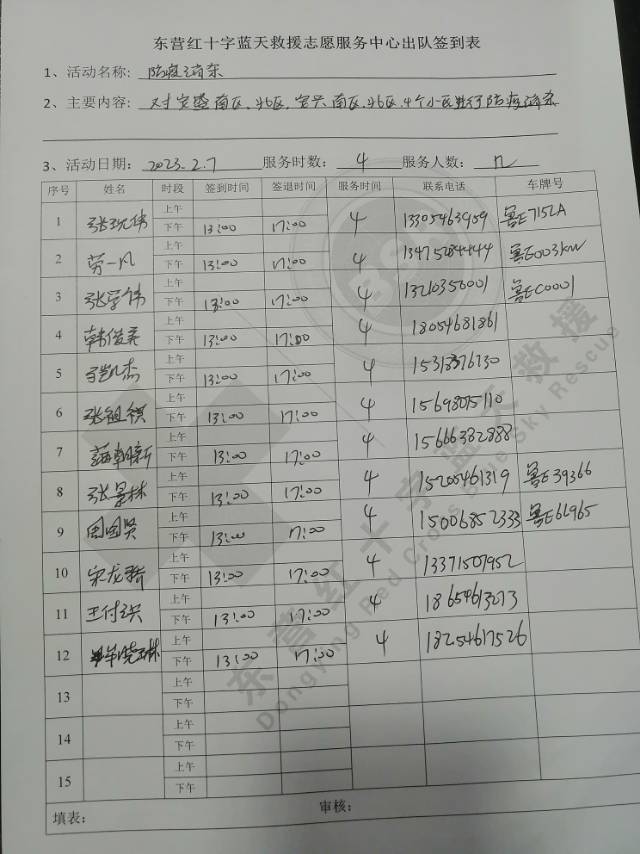 东营红十字蓝天救援志愿服务中心出队签到表
1、活动名称: 防疫消杀
2、主要内容: 对宝盛南区、北区、宝兴南区、北区、4个小区进行防疫消杀
3、活动日期: 2023.2.7 服务时数: 4 服务人数: 12
序号 姓名 时段 签到时间 签退时间 服务时间 联系电话 车牌号
上午
1 下午 13:00 17:00 4 13305463959 鲁E715LA
上午
2 劳一凡 下午 13:00 17:00 4 13475284444 鲁E003KW
上午
3 张学伟 下午 13:00 17:00 4 13210356001 鲁EC0001
上午
4 下午 13:00 17:00 4 18054681861
上午
5 张凯杰 下午 13:00 17:00 4 15318376730
上午
6 张祖祺 下午 13:00 17:00 4 15698075110
上午
7 下午 13:00 17:00 4 15666382888
上午
8 张景林 下午 13:00 17:00 4 15205461319 鲁E39366
上午
9 下午 13:00 17:00 4 15006852333 鲁E6L965
上午
10 宋龙 下午 13:00 17:00 4 13371507952
上午
11 王付洪 下午 13:00 17:00 4
上午
12 下午 13:00 17:00 4 18254617526
上午
13 下午
上午
14 下午
上午
15 下午
填表: 审核:
东营红十字蓝天救援
Dongying Red Cross Blue Sky Rescue